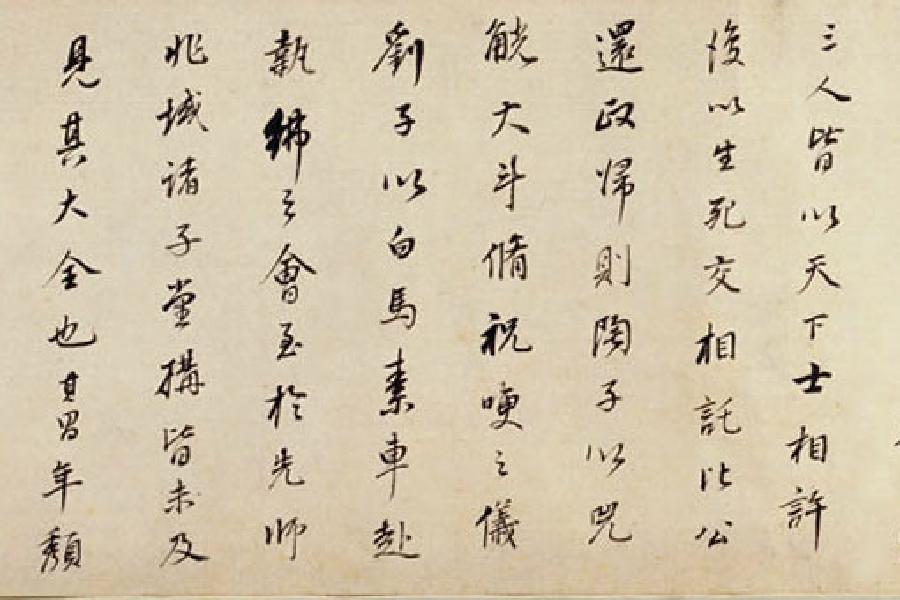 三人皆以天下士相許
後以生死交相託比公
還政歸則陶子以兕
觥大斗脩祝哽之儀
劉子以白馬素車赴
執紼之會至於先師
兆域諸子堂構皆未及
見其大全也其曷年頽